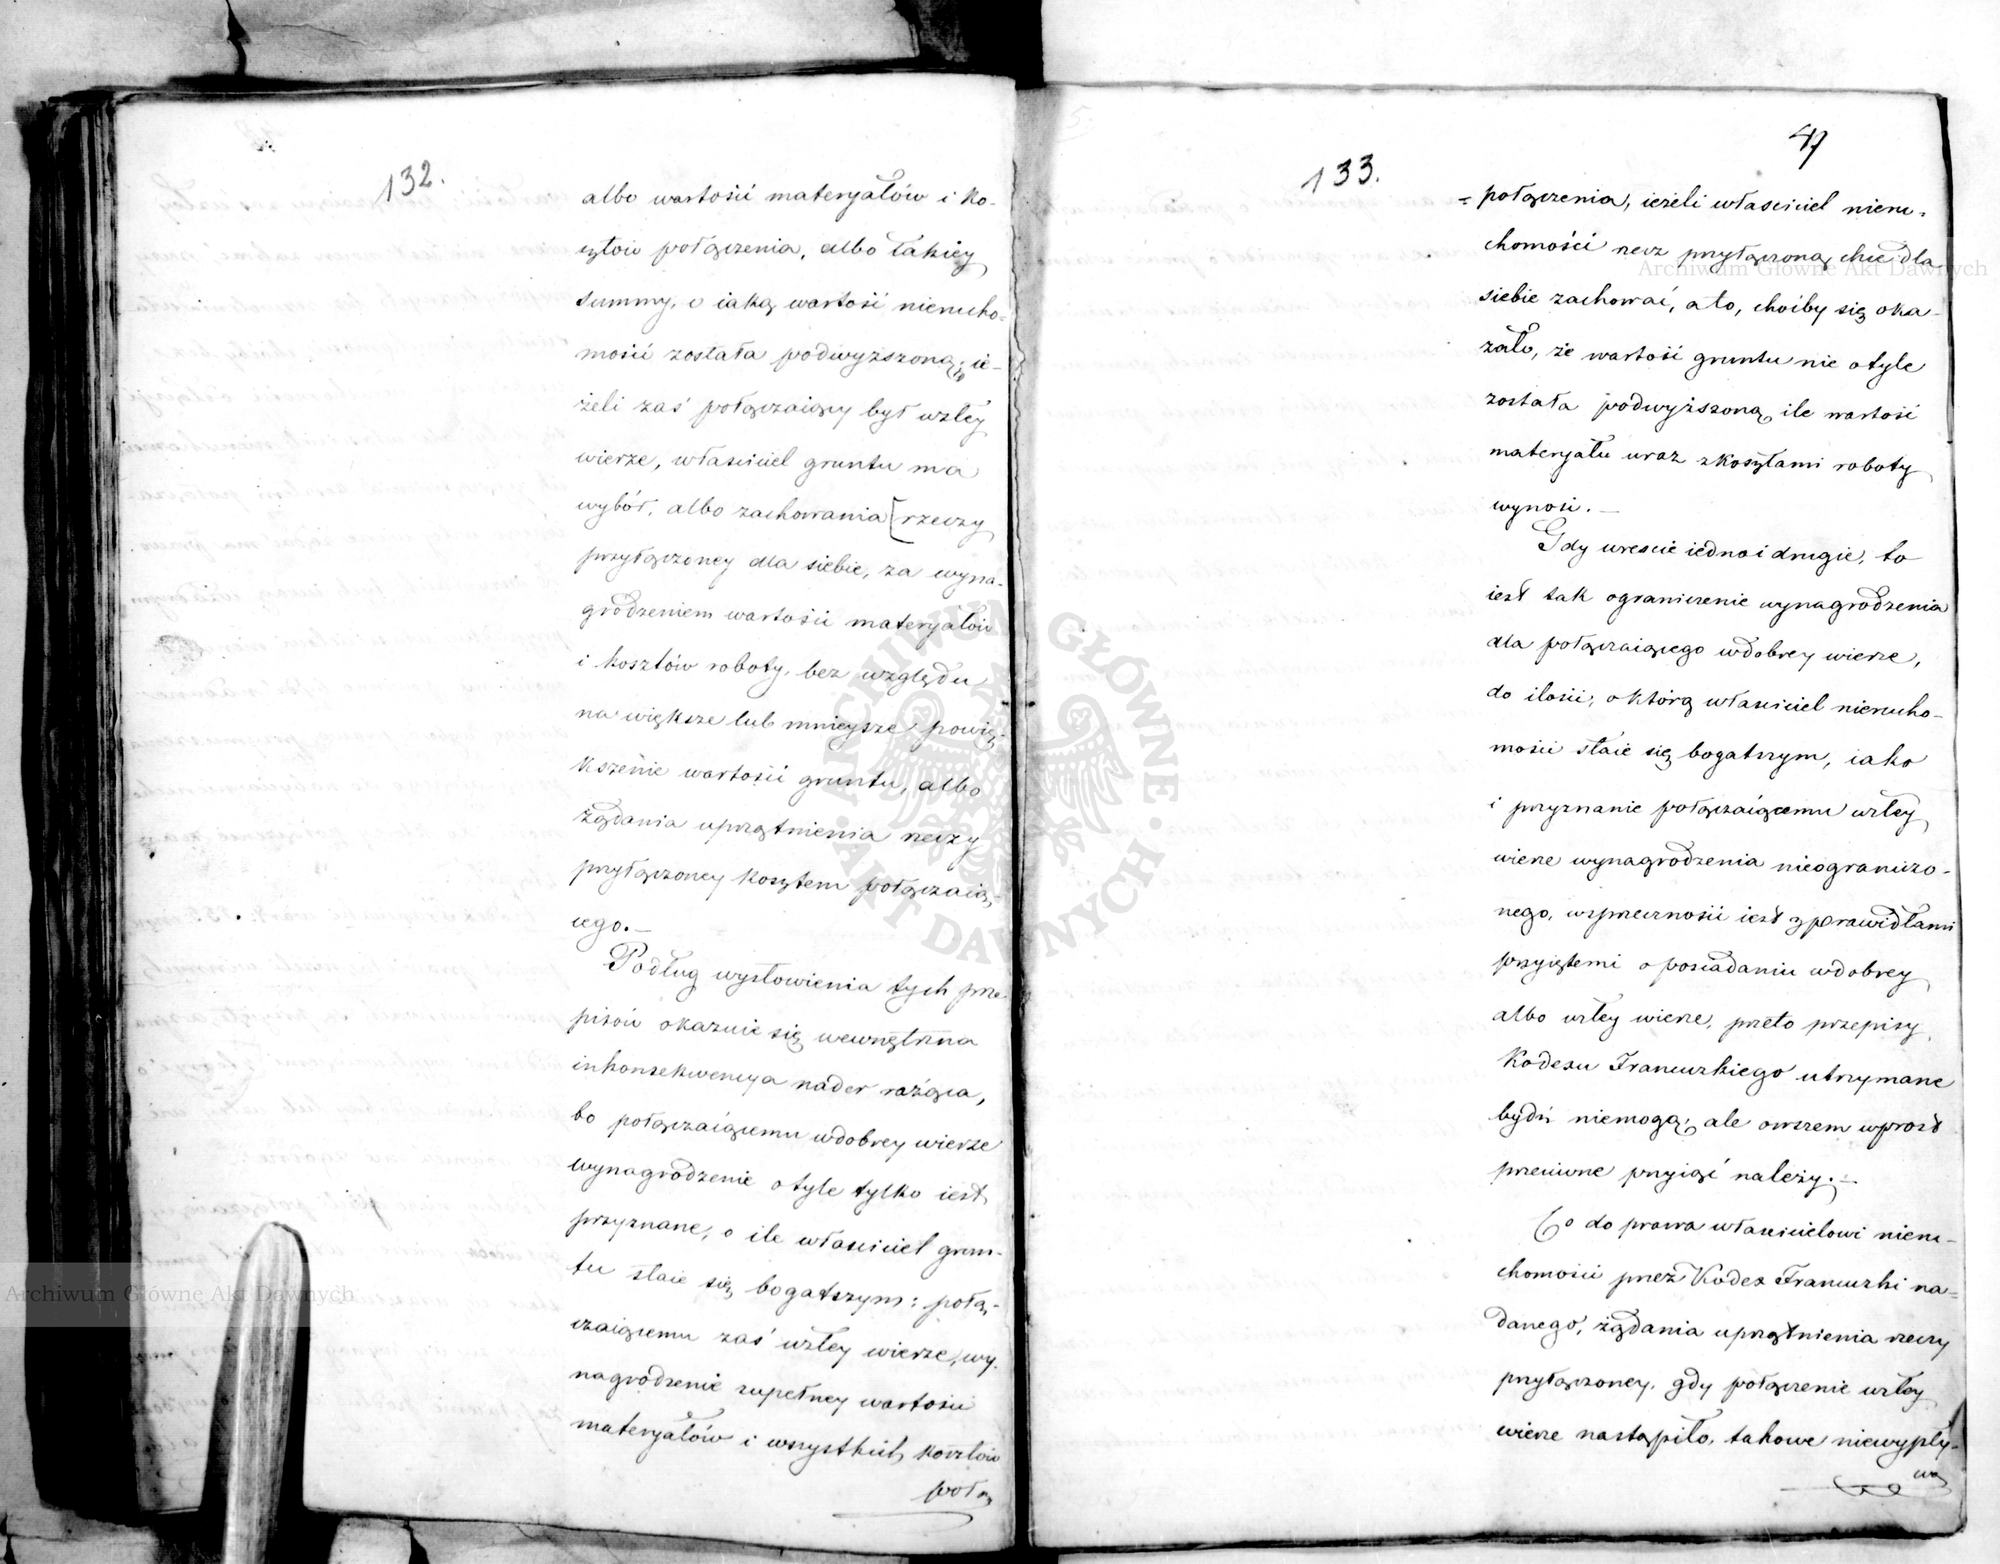 132.
albo wartości materyałów i ko-
sztów połączenia, albo takiey
summy, o iaką wartość nierucho-
mości została podwyższoną; ie-
żeli zaś połączaiący był wzłey
wierze, właściciel gruntu ma
wybór, albo zachowania [rzeczy
przyłączoney dla siebie, za wyna-
grodzeniem wartości materyałów
i kosztów roboty, bez względu
na większe lub mnieysze powię-
kszenie wartości gruntu, albo
żądania uprzątnienia rzeczy
przyłączoney kosztem połączaią-
cego.—
Podług wysłowienia tych prze-
pisów okazuie się wewnętrzna
inkonsekwencya nader rażąca,
bo połączaiącemu wdobrey wierze
wynagrodzenie otyle tylko iest
przyznane, o ile właściciel grun-
tu staie się bogatszym: połą-
czaiącemu zaś wzłey wierze, wy-
nagrodzenie zupełney wartości
materyałów i wszystkich kosztów
połą
47
133.
= połączenia, ieżeli właściciel nieru-
chomości rzecz przyłączoną chce dla
siebie zachować, a to, choćby się oka-
zało, że wartość gruntu nie otyle
została podwyższoną ile wartość
materyału wraz zkosztami roboty
wynosi.—
Gdy wreście iedno i drugie, to
iest tak ograniczenie wynagrodzenia
dla połączaiącego wdobrey wierze,
do ilości, o którą właściciel nierucho-
mości staie się bogatszym, iako
i przyznanie połączaiącemu wzłey
wierze wynagrodzenia nieograniczo-
nego, wsprzeczności iest z prawidłami
przyiętemi o posiadaniu wdobrey
albo wzłey wierze, przeto przepisy
Kodexu Francuzkiego utrzymane
bydź niemogą; ale owszem wprost
przeciwne przyiąć należy.—
Co do prawa właścicielowi nieru-
chomości przez Kodex Francuzki na-
danego, żądania uprzątnienia rzeczy
przyłączoney, gdy połączenie wzłey
wierze nastąpiło, takowe niewypły-
wa
ARCHIWUM GŁÓWNE · AKT DAWNYCH ·
Archiwum Główne Akt Dawnych
Archiwum Główne Akt Dawnych